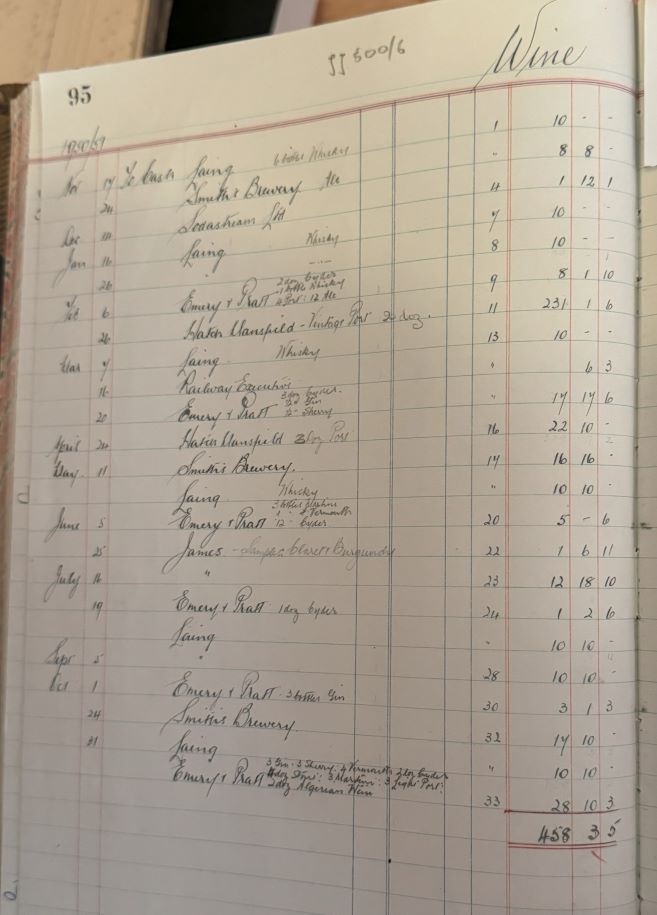 JJ 500/6
Wine
95
Nov 17 To Cash Laing 6 bottles Whisky 1 10 - -
24 Smith's Brewery Ale " 8 8 -
Sodastream Ltd 4 1 12 1
Dec Laing Whisky 7 10 - -
Jan 16 " 8 10 - -
26 Emery & Pratt 2 doz Cyder 1 bottle Whisky 4 Port: 12 Ale 9 8 1 10
Feb 6 Hatch Mansfield - Vintage Port 20 doz. 11 231 1 6
26 Laing Whisky 13 10 - -
Mar 7 Railway Executive " 6 3
16 Emery & Pratt 3 doz Cyder. Gin Sherry " 17 17 6
20 Hatch Mansfield 3 doz Port 16 22 10 -
April 24 Smith's Brewery. 17 16 16 -
May 11 Laing Whisky " 10 10 -
Emery & Pratt 3 bottles Vermouth 12 Cyder 20 5 - 6
June 5 James - Samples Claret & Burgundy 22 1 6 11
25 " 23 12 18 10
July 16 Emery & Pratt 1 doz Cyder 24 1 2 6
19 Laing " 10 10 -
" 28 10 10 -
Sept 5 Emery & Pratt - 3 bottles Gin 30 3 1 3
Oct 1 Smith's Brewery 32 17 10 -
24 Laing " 10 10 -
31 Emery & Pratt 3 Gin: 3 Sherry: 4 Vermouth 2 doz Cyder
4 doz Stout: 3 Martini: 3 Light Port:
2 doz Algerian Wine 33 28 10 3
458 3 5